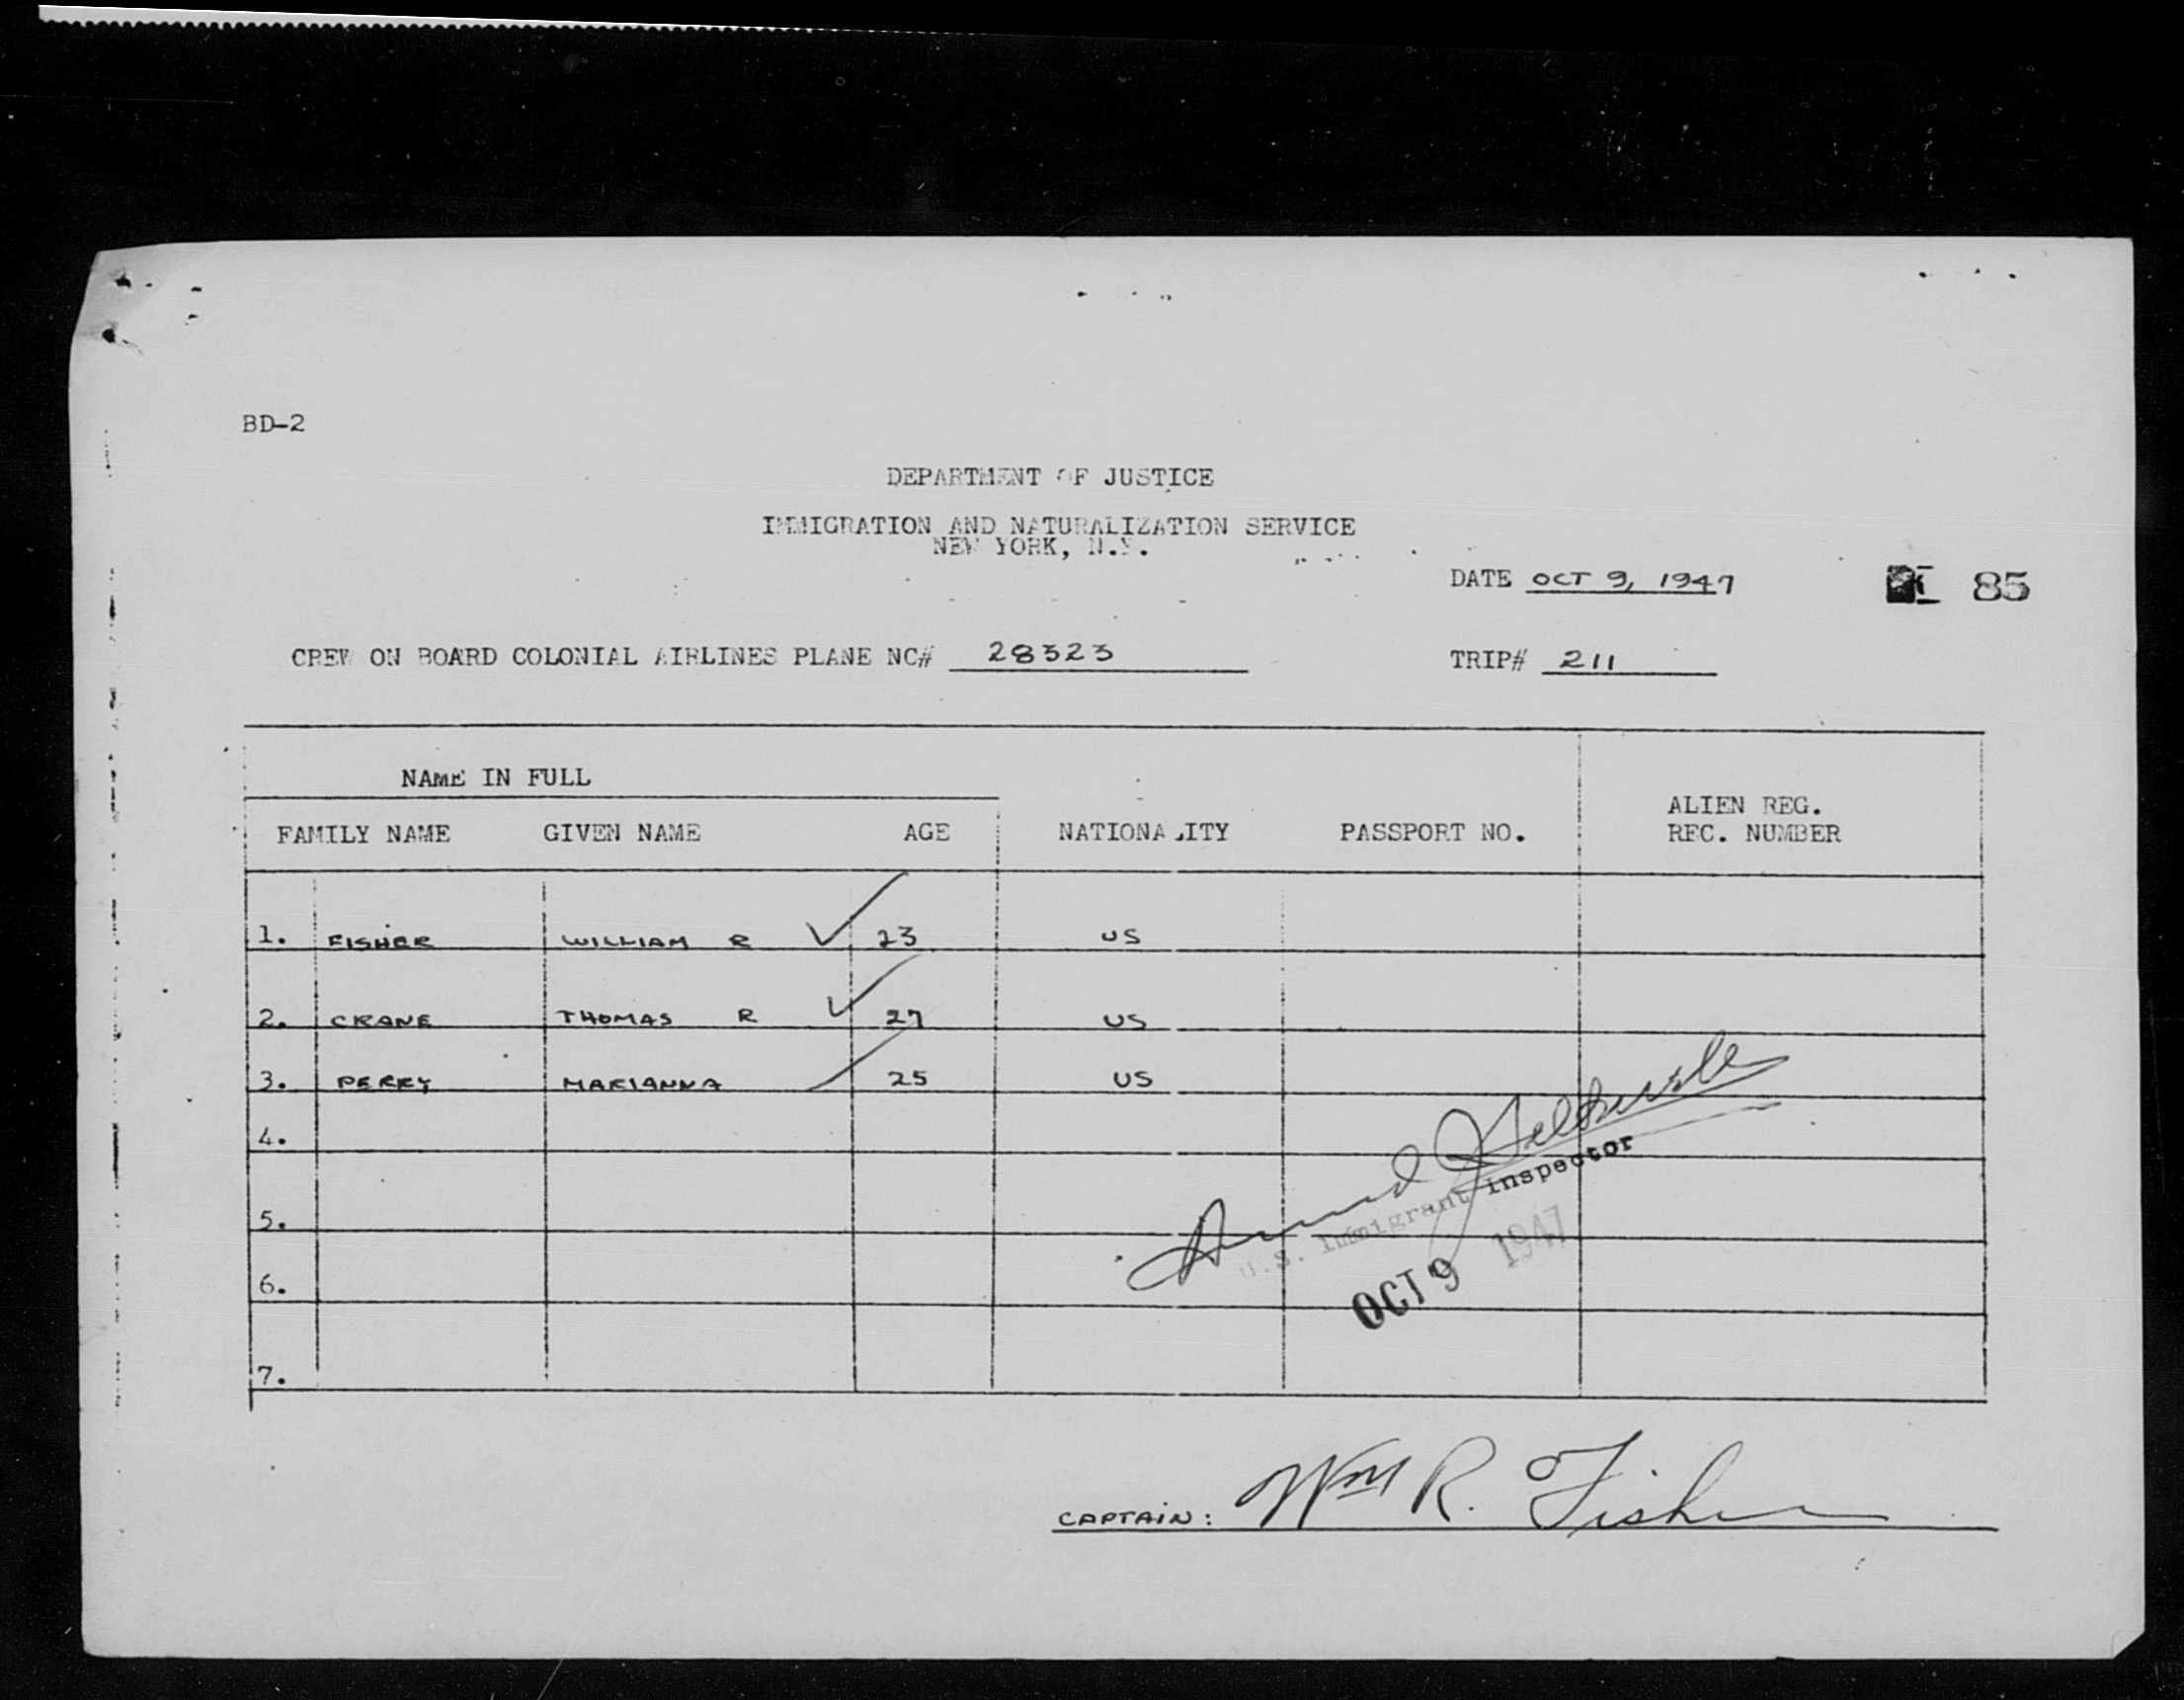 BD-2
DEPARTMENT OF JUSTICE
IMMIGRATION AND NATURALIZATION SERVICE
NEW YORK, N.Y.
DATE OCT 9, 1947
85
CREW ON BOARD COLONIAL AIRLINES PLANE NC# 28323 TRIP# 211
NAME IN FULL
FAMILY NAME GIVEN NAME AGE NATIONALITY PASSPORT NO. ALIEN REG. REC. NUMBER
1. FISHER WILLIAM R 23 US
2. CRANE THOMAS R 27 US
3. PERRY MARIANNA 25 US
4.
U.S. Immigrant Inspector
5.
OCT 9 1947
6.
7.
CAPTAIN: Wm R. Fisher